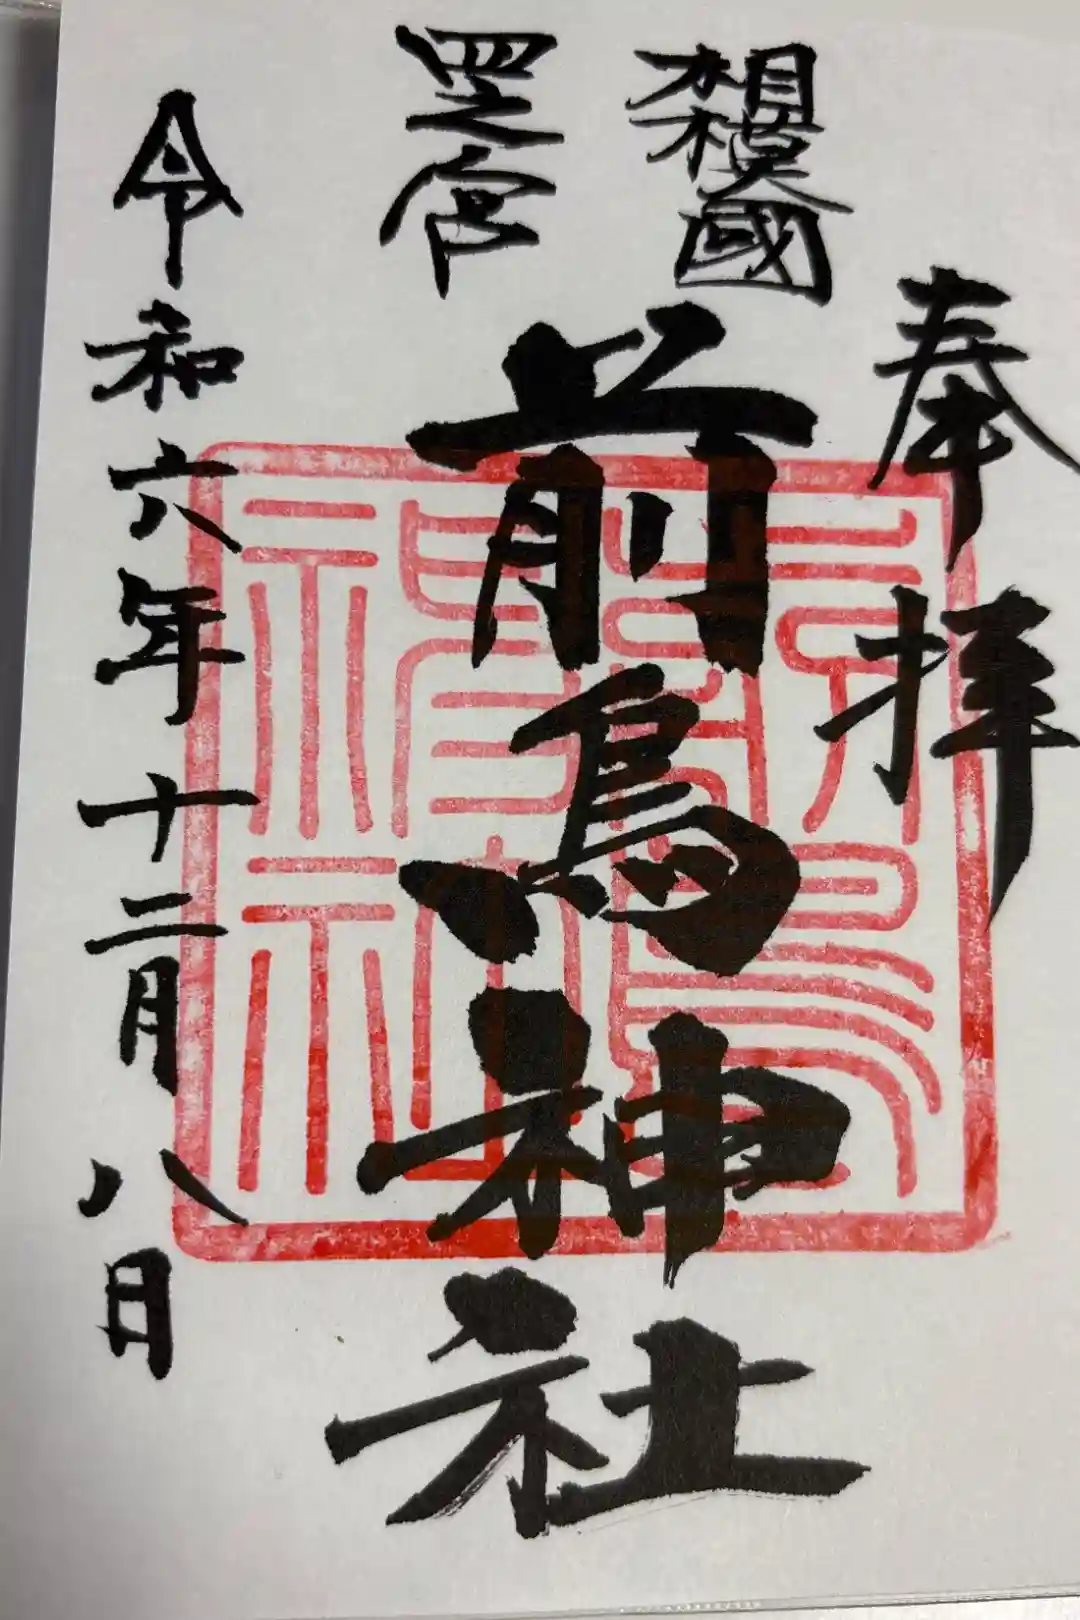 奉拝
相模國
四之宮
前鳥神社
令和六年十二月八日
前鳥神社